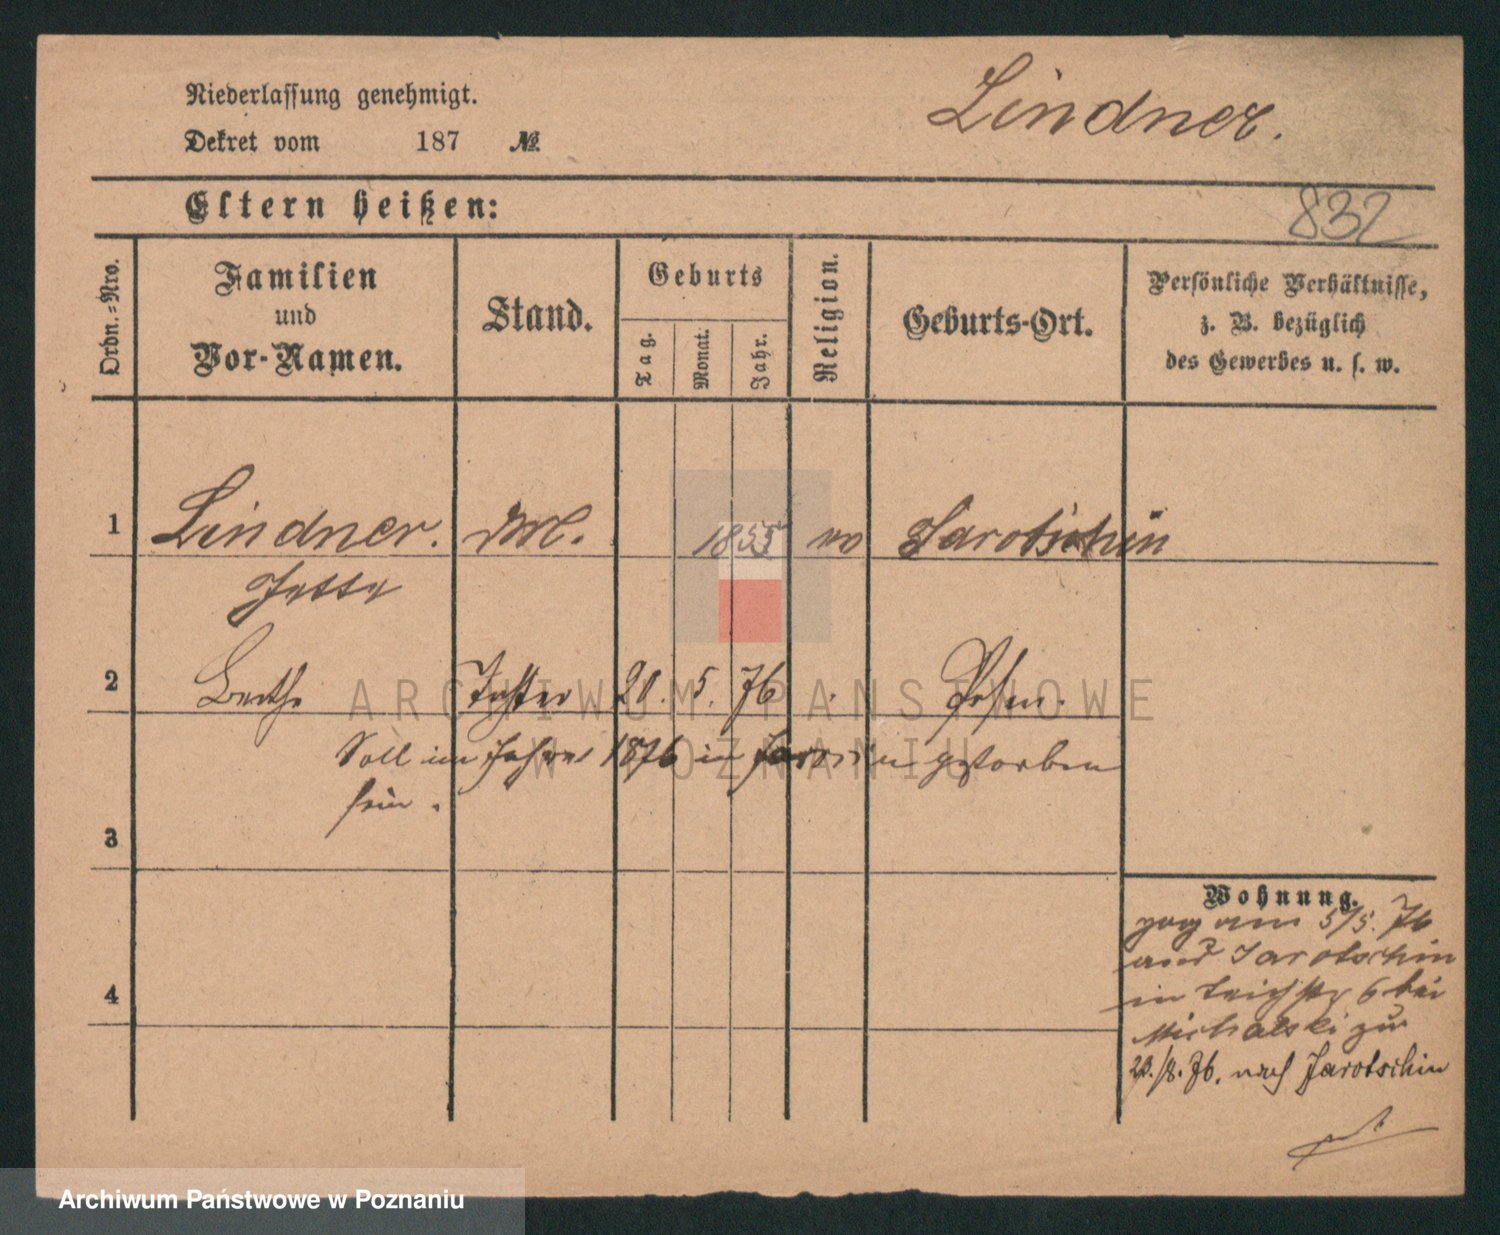 Niederlassung genehmigt.
Dekret vom 187 №
Lindner.
832
Eltern heißen:
Ordn.=Nro.
Familien
und
Vor-Namen.
Stand.
Geburts
Tag.
Monat.
Jahr.
Religion.
Geburts-Ort.
Persönliche Verhältnisse,
z. B. bezüglich
des Gewerbes u. s. w.
1 Lindner. 1855 Jarotschin
Jette
2 Berthe Tochter 20. 5. 76 Posen.
Soll im Jahre 1876 in gestorben
sein.
3
4
Wohnung.
zog am 5/5. 76
aus Jarotschin
in Teichstr 6 bei
Michalski zu
23./8. 76. nach Jarotschin
ARCHIWUM PAŃSTWOWE
W POZNANIU
Archiwum Państwowe w Poznaniu